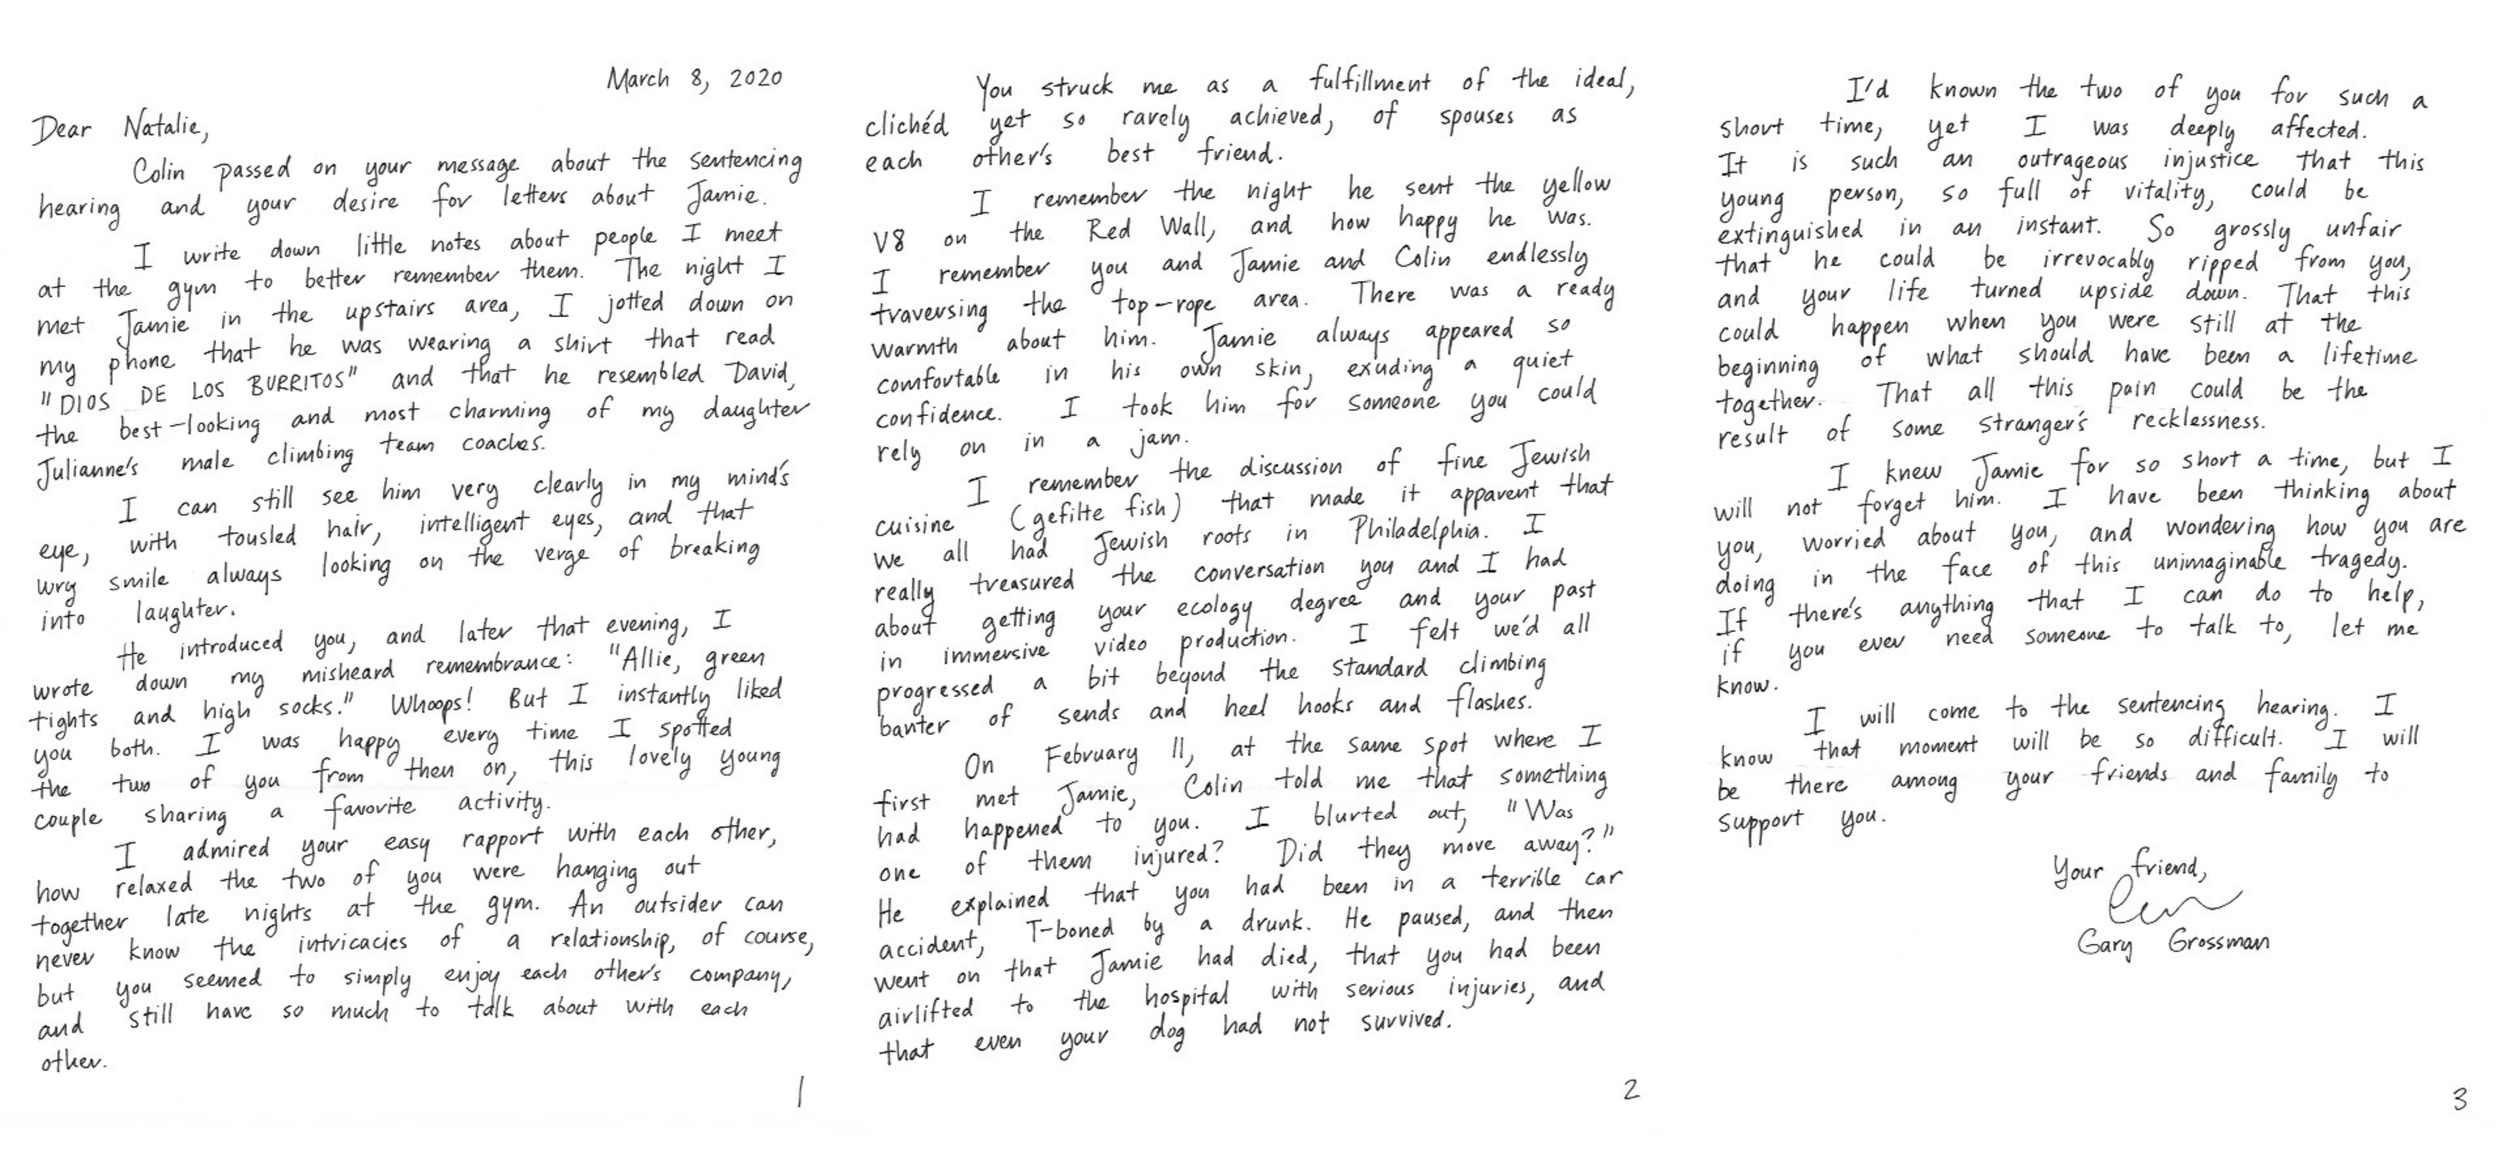 March 8, 2020
Dear Natalie,
Colin passed on your message about the sentencing
hearing and your desire for letters about Jamie.
I write down little notes about people I meet
at the gym to better remember them. The night I
met Jamie in the upstairs area, I jotted down on
my phone that he was wearing a shirt that read
"DIOS DE LOS BURRITOS" and that he resembled David,
the best-looking and most charming of my daughter
Julianne's male climbing team coaches.
I can still see him very clearly in my mind's
eye, with tousled hair, intelligent eyes, and that
wry smile always looking on the verge of breaking
into laughter.
He introduced you, and later that evening, I
wrote down my misheard remembrance: "Allie, green
tights and high socks." Whoops! But I instantly liked
you both. I was happy every time I spotted
the two of you from then on, this lovely young
couple sharing a favorite activity.
I admired your easy rapport with each other,
how relaxed the two of you were hanging out
together late nights at the gym. An outsider can
never know the intricacies of a relationship, of course,
but you seemed to simply enjoy each other's company,
and still have so much to talk about with each
other.
1
You struck me as a fulfillment of the ideal,
clichéd yet so rarely achieved, of spouses as
each other's best friend.
I remember the night he sent the yellow
V8 on the Red Wall, and how happy he was.
I remember you and Jamie and Colin endlessly
traversing the top-rope area. There was a ready
warmth about him. Jamie always appeared so
comfortable in his own skin, exuding a quiet
confidence. I took him for someone you could
rely on in a jam.
I remember the discussion of fine Jewish
cuisine (gefilte fish) that made it apparent that
we all had Jewish roots in Philadelphia. I
really treasured the conversation you and I had
about getting your ecology degree and your past
in immersive video production. I felt we'd all
progressed a bit beyond the standard climbing
banter of sends and heel hooks and flashes.
On February 11, at the same spot where I
first met Jamie, Colin told me that something
had happened to you. I blurted out, "Was
one of them injured? Did they move away?"
He explained that you had been in a terrible car
accident, T-boned by a drunk. He paused, and then
went on that Jamie had died, that you had been
airlifted to the hospital with serious injuries, and
that even your dog had not survived.
2
I'd known the two of you for such a
short time, yet I was deeply affected.
It is such an outrageous injustice that this
young person, so full of vitality, could be
extinguished in an instant. So grossly unfair
that he could be irrevocably ripped from you,
and your life turned upside down. That this
could happen when you were still at the
beginning of what should have been a lifetime
together. That all this pain could be the
result of some stranger's recklessness.
I knew Jamie for so short a time, but I
will not forget him. I have been thinking about
you, worried about you, and wondering how you are
doing in the face of this unimaginable tragedy.
If there's anything that I can do to help,
if you ever need someone to talk to, let me
know.
I will come to the sentencing hearing. I
know that moment will be so difficult. I will
be there among your friends and family to
support you.
Your friend,
Gary Grossman
3